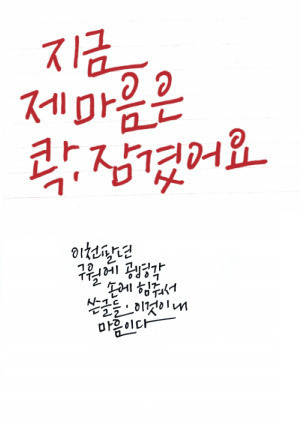 지금
제 마음은
콱, 잠겼어요
이천팔년
구월에 공병각
손에 힘줘서
쓴글들. 이것이 내
마음이다